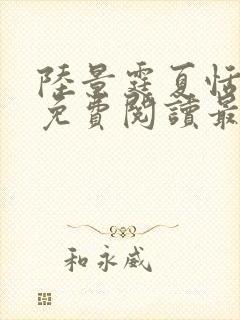 陸景霆夏恬
免費閱讀最
和永威